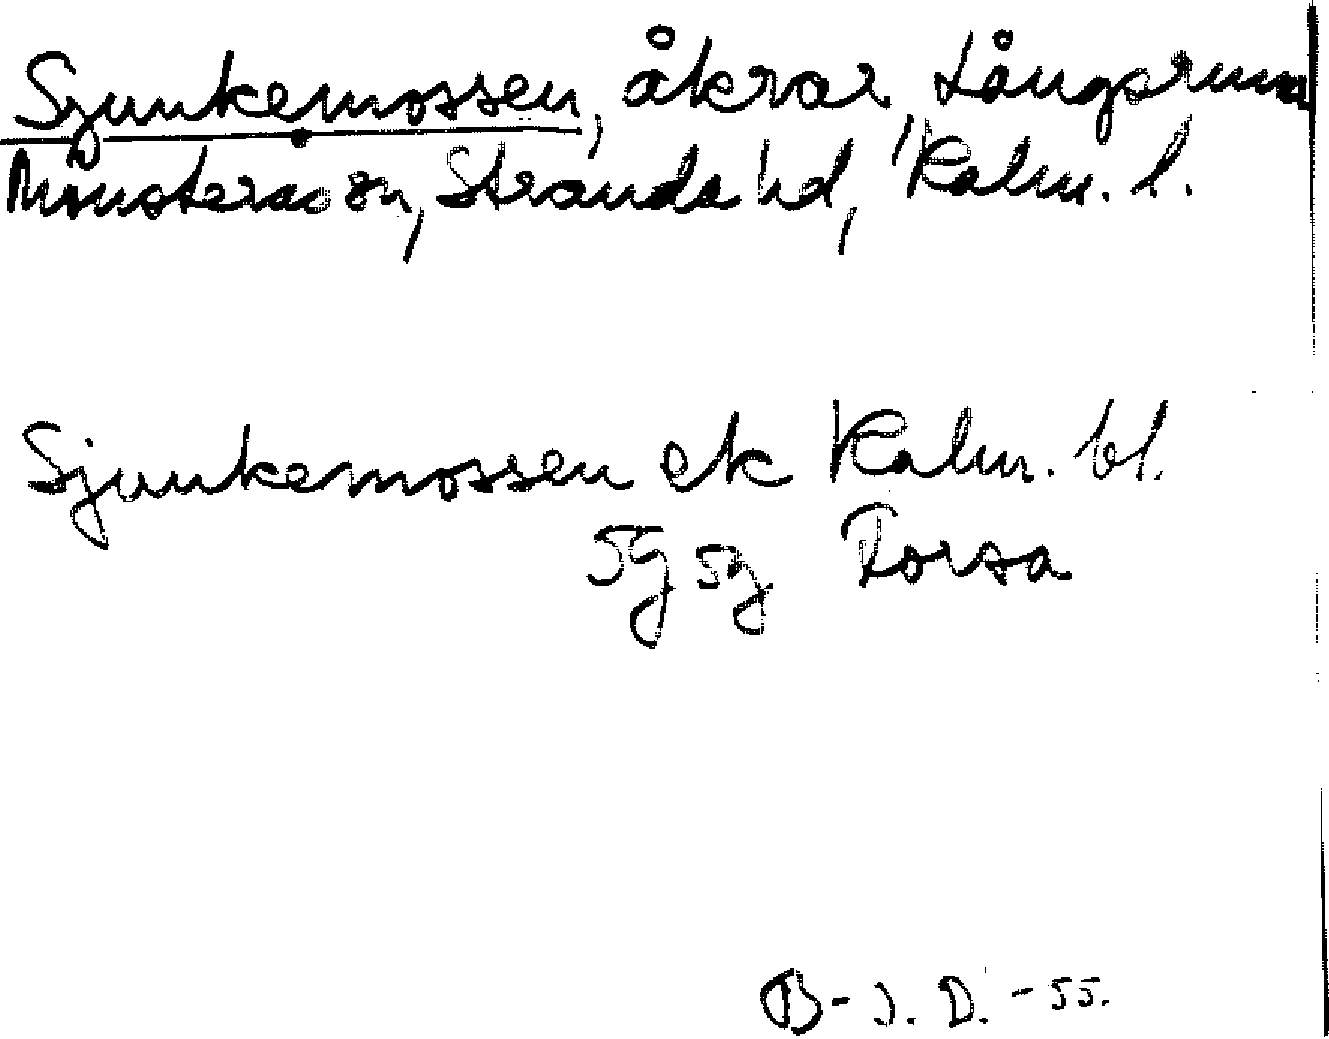 Sjunkemossen, åkrar, Långsruma
Mönsterås sn, Stranda hd, Kalm. l.
Sjunkemossen ek Kalm. bl.
5g 5g Torsa
B-J. D. -55.